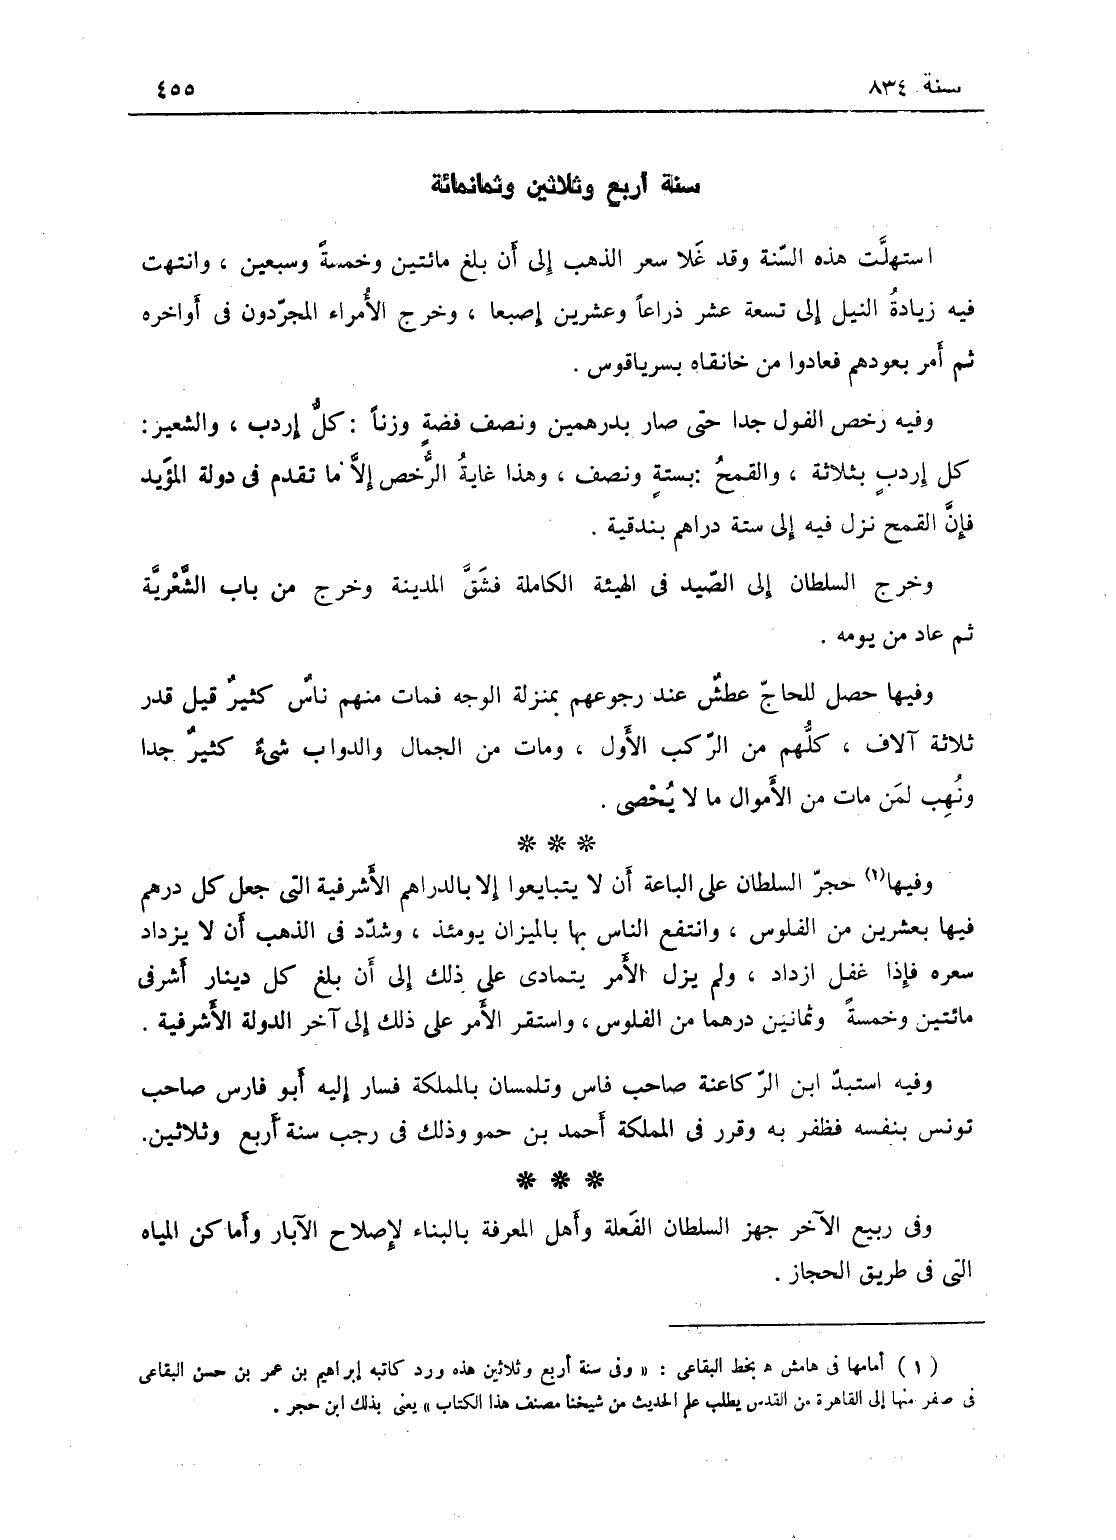 سنة ٨٣٤
٤٥٥
سنة أربع وثلاثين وثمانمائة
استهلَّت هذه السّنة وقد غَلا سعر الذهب إلى أَن بلغ مائتين وخمسةً وسبعين ، وانتهت
فيه زيادةُ النيل إلى تسعة عشر ذراعاً وعشرين إصبعا ، وخرج الأُمراء المجرّدون فى أَواخره
ثم أَمر بعودهم فعادوا من خانقاه بسرياقوس .
وفيه رخص الفول جدا حتى صار بدرهمين ونصف فضةٍ وزناً : كلُّ إردب ، والشعير :
كل إردبٍ بثلاثة ، والقمحُ : بستةٍ ونصف ، وهذا غايةُ الرُّخص إلاَّ ما تقدم فى دولة المؤَيد
فإنَّ القمح نزل فيه إلى ستة دراهم بندقية .
وخرج السلطان إلى الصّيد فى الهيئة الكاملة فشَقَّ المدينة وخرج من باب الشَّعْريَّة
ثم عاد من يومه .
وفيها حصل للحاجّ عطشٌ عند رجوعهم بمنزلة الوجه فمات منهم ناسٌ كثيرٌ قيل قدر
ثلاثة آلاف ، كلُّهم من الرّكب الأَول ، ومات من الجمال والدواب شىءٌ كثيرٌ جدا
ونُهِب لمَن مات من الأَموال ما لا يُحْصى .
* * *
وفيها(١) حجرّ السلطان على الباعة أَن لا يتبايعوا إلا بالدراهم الأَشرفية التى جعل كل درهم
فيها بعشرين من الفلوس ، وانتفع الناس بها بالميزان يومئذ ، وشدّد فى الذهب أَن لا يزداد
سعره فإذا غفل ازداد ، ولم يزل الأَمر يتمادى على ذلك إلى أَن بلغ كل دينار أَشرفى
مائتين وخمسةً وثمانين درهما من الفلوس ، واستقر الأَمر على ذلك إلى آخر الدولة الأَشرفية .
وفيه استبدّ ابن الرّكاعنة صاحب فاس وتلمسان بالمملكة فسار إليه أَبو فارس صاحب
تونس بنفسه فظفر به وقرر فى المملكة أَحمد بن حمو وذلك فى رجب سنة أَربع وثلاثين.
* * *
وفى ربيع الآخر جهز السلطان الفَعلة وأَهل المعرفة بالبناء لإصلاح الآبار وأَماكن المياه
التى فى طريق الحجاز .
(١) أمامها فى هامش ﻫ بخط البقاعى : « وفى سنة أربع وثلاثين هذه ورد كاتبه إبراهيم بن عمر بن حسن البقاعى
فى صفر منها إلى القاهرة من القدس يطلب علم الحديث من شيخنا مصنف هذا الكتاب » يعنى بذلك ابن حجر .